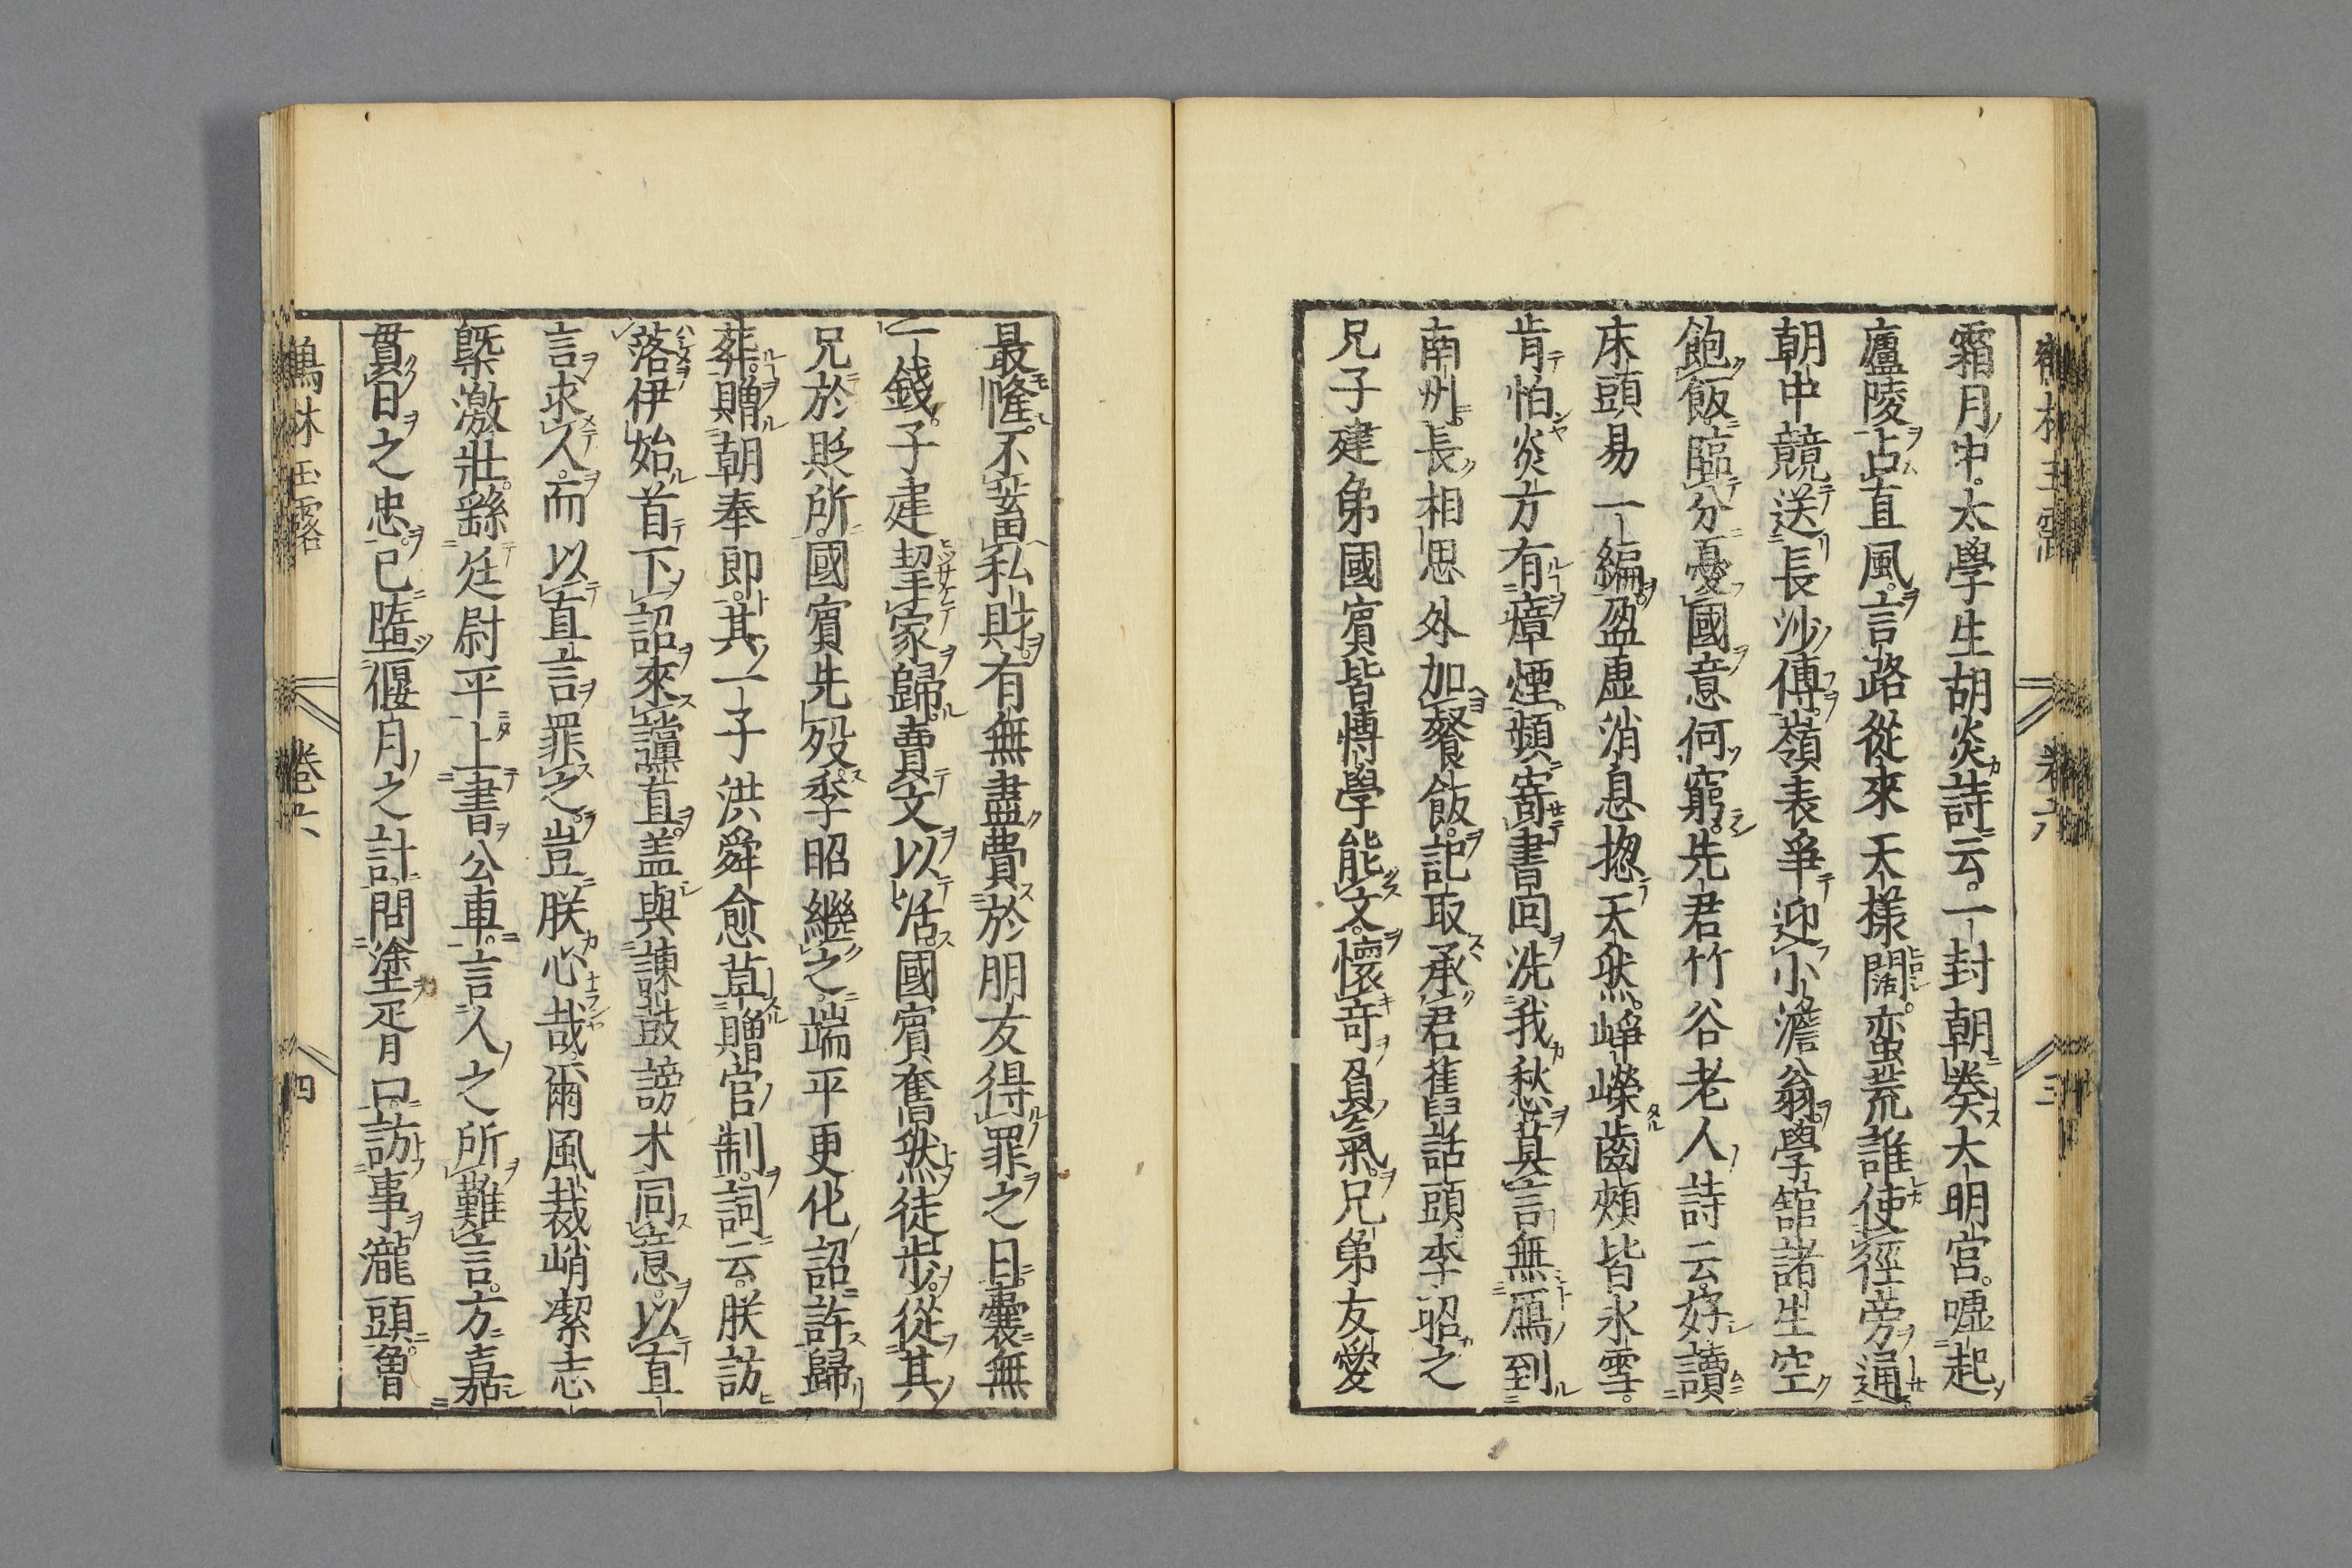 鶴林玉露 卷六 三
霜月中太學生胡炎詩云一封朝奏大明宮嘘起
廬陵占直風言路從來天樣闊蛮荒誰使徑旁通
朝中競送長沙傅嶺表爭迎小澹翁學舘諸生空
飽飯臨分憂國意何窮先君竹谷老人詩云好讀
床頭易一編盈虛消息揔天然崢嶸齒頰皆氷雪
肯怕炎方有瘴煙頻寄書回洗我愁莫言無鴈到
南州長相思外加餐飯記取承君舊話頭李昭之
兄子建弟國賓皆博學能文懷竒負氣兄弟友愛
最隆不畜私財有無盡費於朋友得罪之日囊無
一錢子建挈家歸賣文以活國賓奮然徒步從其
兄於貶所國賓先歿季昭繼之端平更化詔許歸
葬贈朝奉郎其一子洪舜俞草贈官制詞云朕訪
落伊始首下詔來讜直盖與諫鼓謗木同意以直
言求人而以直言罪之豈朕心哉爾風裁峭潔志
槩激壯繇廷尉平上書公車言人之所難言方嘉
貫日之忠已墮偃月之計問塗胥口訪事瀧頭魯
鶴林玉露 卷六 四